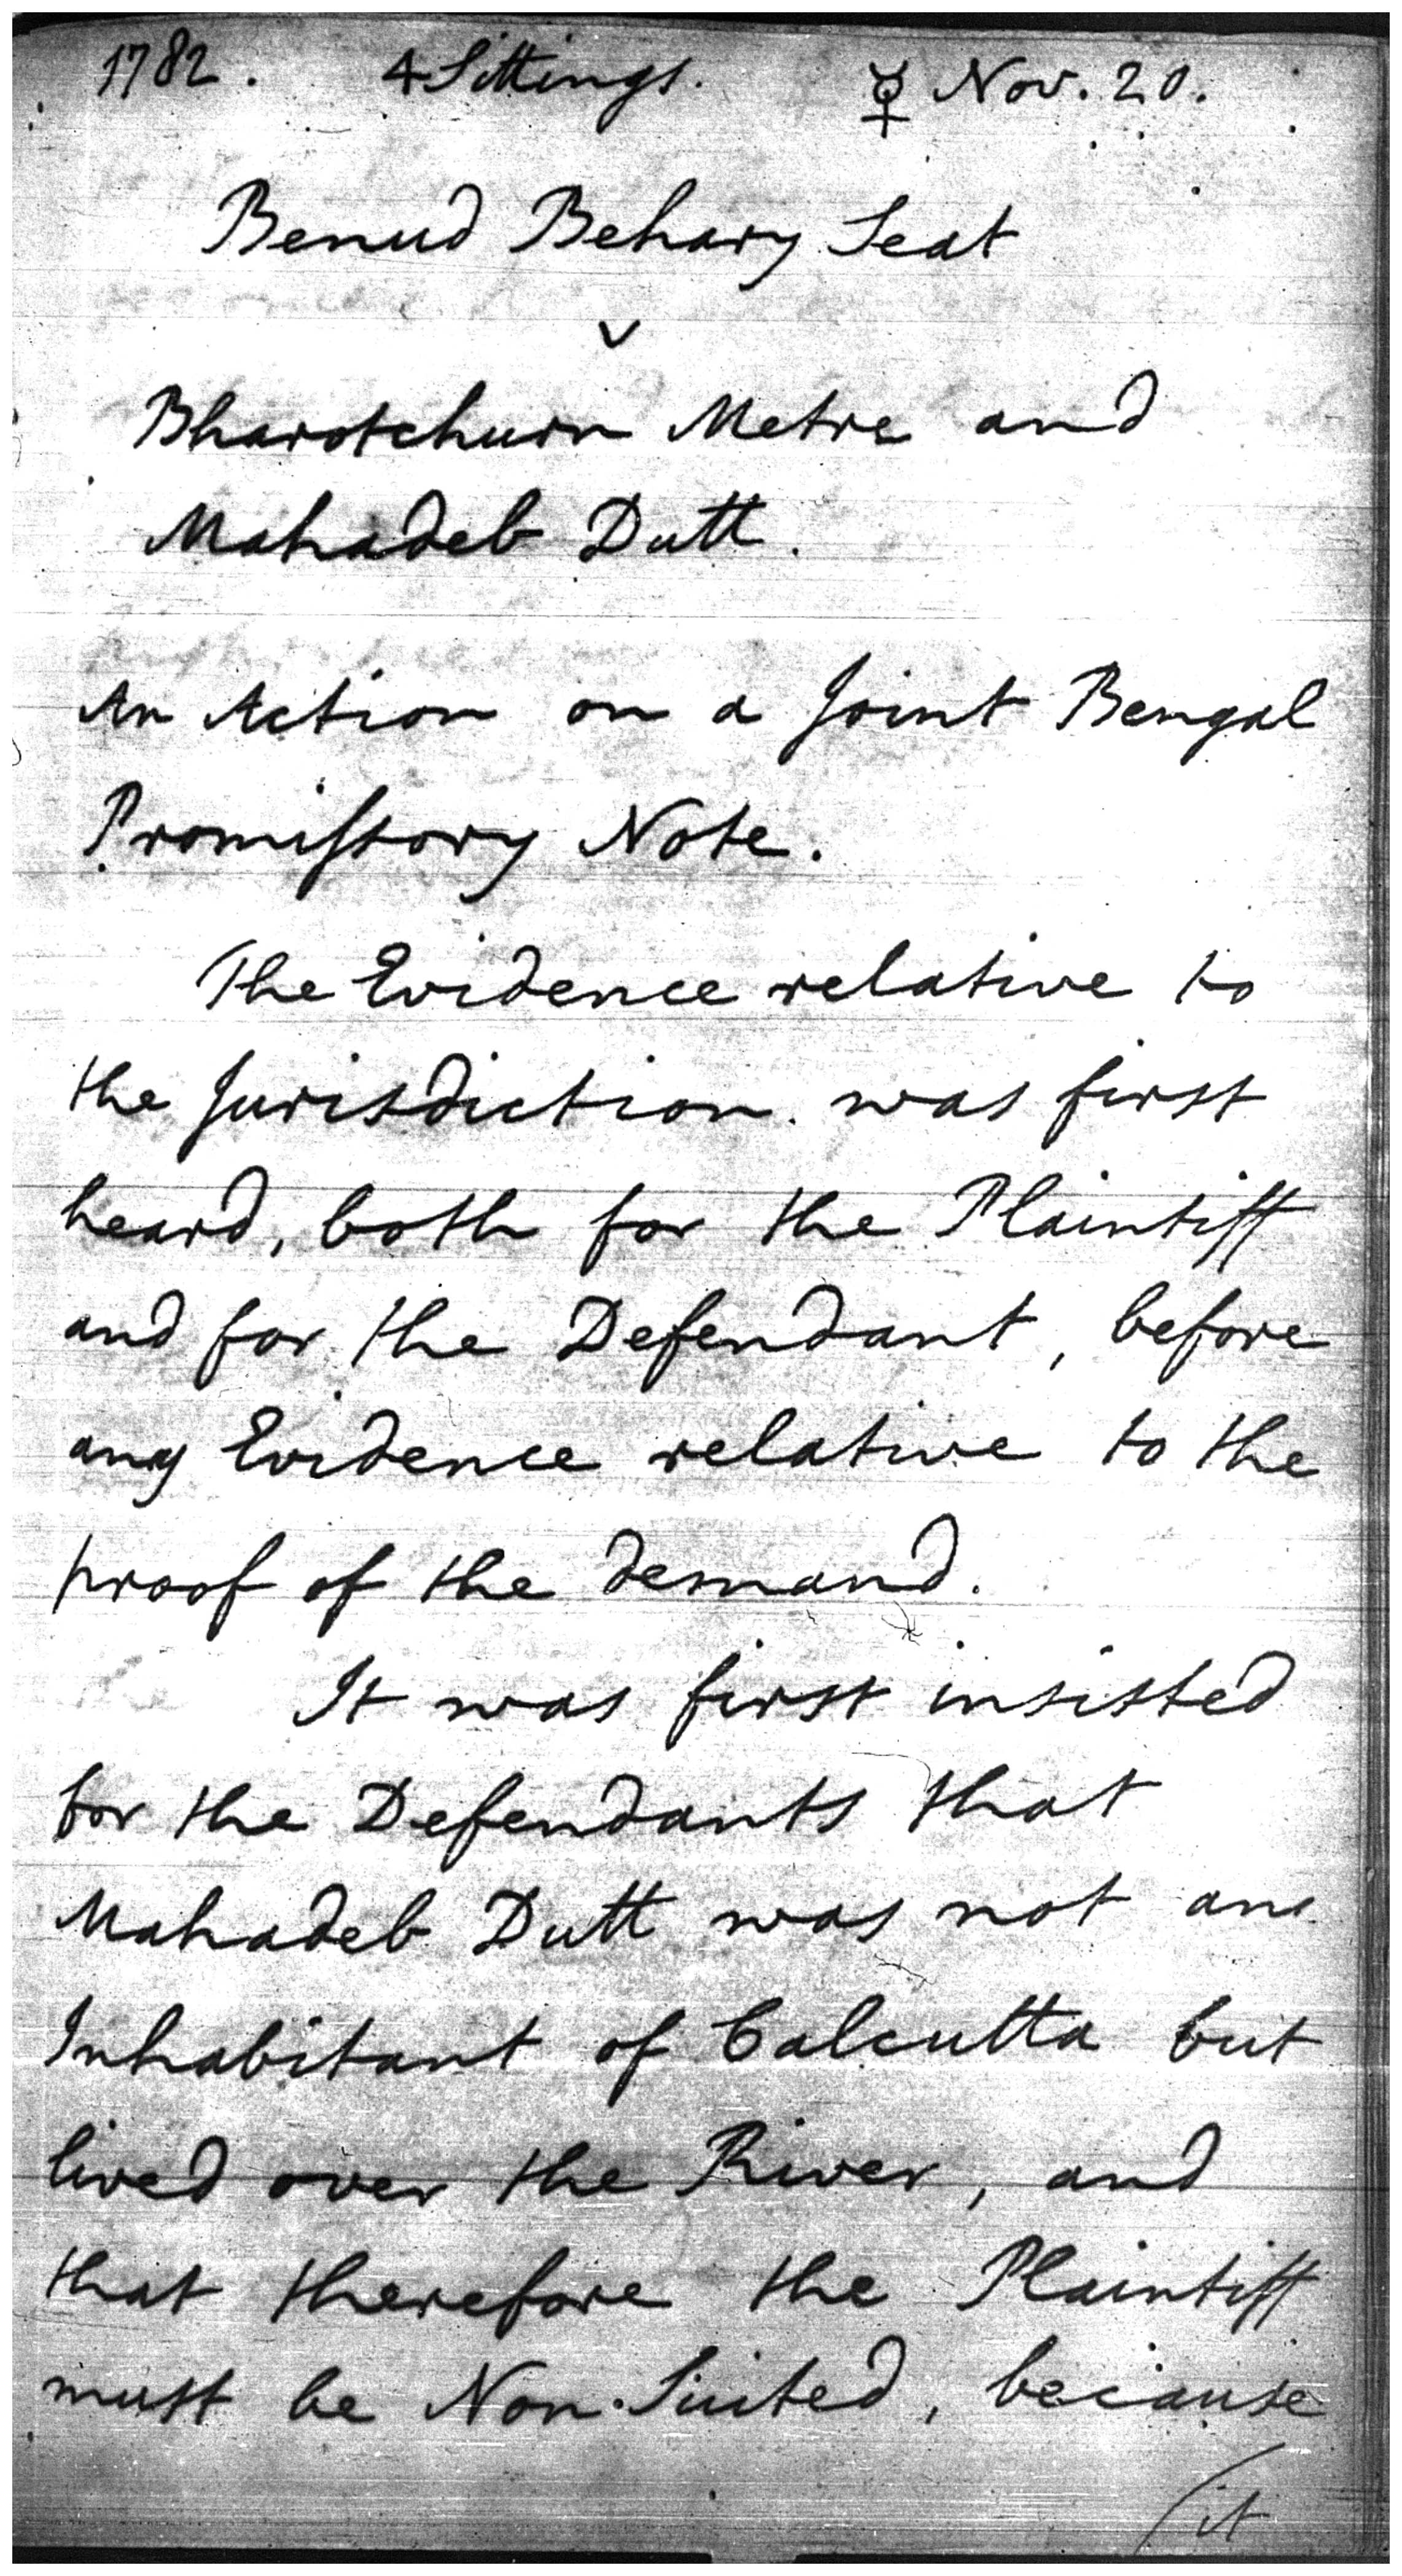 1782. 4 Sittings. ☿ Nov. 20.
Benud Behary Seat
v
Bharotchurn Metre and
Mahadeb Dutt.
An Action on a Joint Bengal
Promiſsory Note.
The Evidence relative to
the Jurisdiction was first
heard, both for the Plaintiff
and for the Defendant, before
any Evidence relative to the
proof of the demand.
It was first insisted
for the Defendants that
Mahadeb Dutt was not an
Inhabitant of Calcutta but
lived over the River, and
that therefore the Plaintiff
must be Non-Suited, because
(it